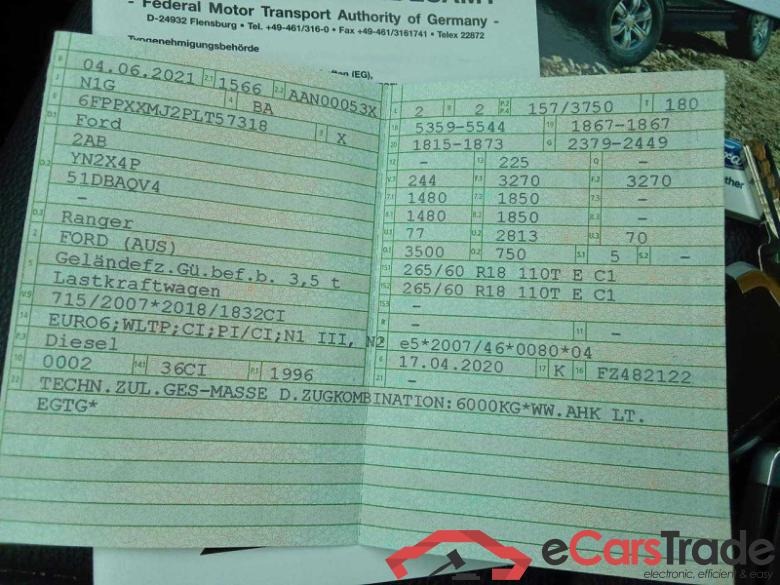 - Federal Motor Transport Authority of Germany -
D-24932 Flensburg • Tel. +49-461/316-0 • Fax +49-461/3161741 • Telex 22872
Typgenehmigungsbehörde
B 04.06.2021 2.1 1566 2.2 AAN00053X
J N1G 4 BA
E 6FPPXXMJ2PLT57318 3 X
D.1 Ford
D.2 2AB
YN2X4P
51DBAQV4
-
D.3 Ranger
2 FORD (AUS)
5 Geländefz.Gü.bef.b. 3,5 t
Lastkraftwagen
V.9 715/2007*2018/1832CI
14 EURO6;WLTP;CI;PI/CI;N1 III, N2
P.3 Diesel
10 0002 14.1 36CI P.1 1996
L 2 9 2 P.2 P.4 157/3750 T 180
18 5359-5544 19 1867-1867
20 1815-1873 G 2379-2449
12 - 13 225 Q -
V.7 244 F.1 3270 F.2 3270
7.1 1480 7.2 1850 7.3 -
8.1 1480 8.2 1850 8.3 -
U.1 77 U.2 2813 U.3 70
O.1 3500 O.2 750 S.1 5 S.2 -
15.1 265/60 R18 110T E C1
15.2 265/60 R18 110T E C1
15.3 -
R - 11 -
K e5*2007/46*0080*04
6 17.04.2020 17 K 16 FZ482122
21 -
22 TECHN.ZUL.GES-MASSE D.ZUGKOMBINATION:6000KG*WW.AHK LT.
EGTG*
ther
eCarsTrade
electronic, efficient & easy